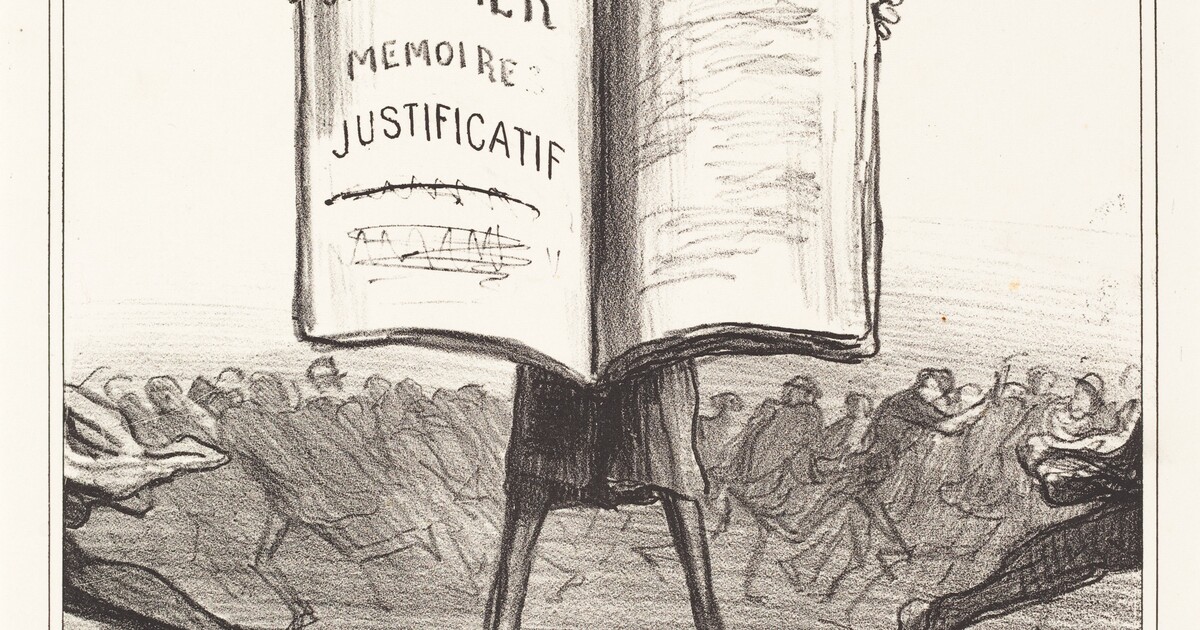 MEMOIRE
JUSTIFICATIF